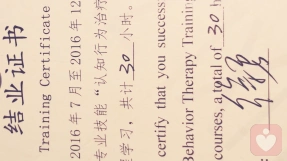 结业证书
Training Certificate
2016年7月至2016年12
专业技能“认知行为治疗
学习，共计 30 小时。
certify that you success
Behavior Therapy Training
courses, a total of 30 h